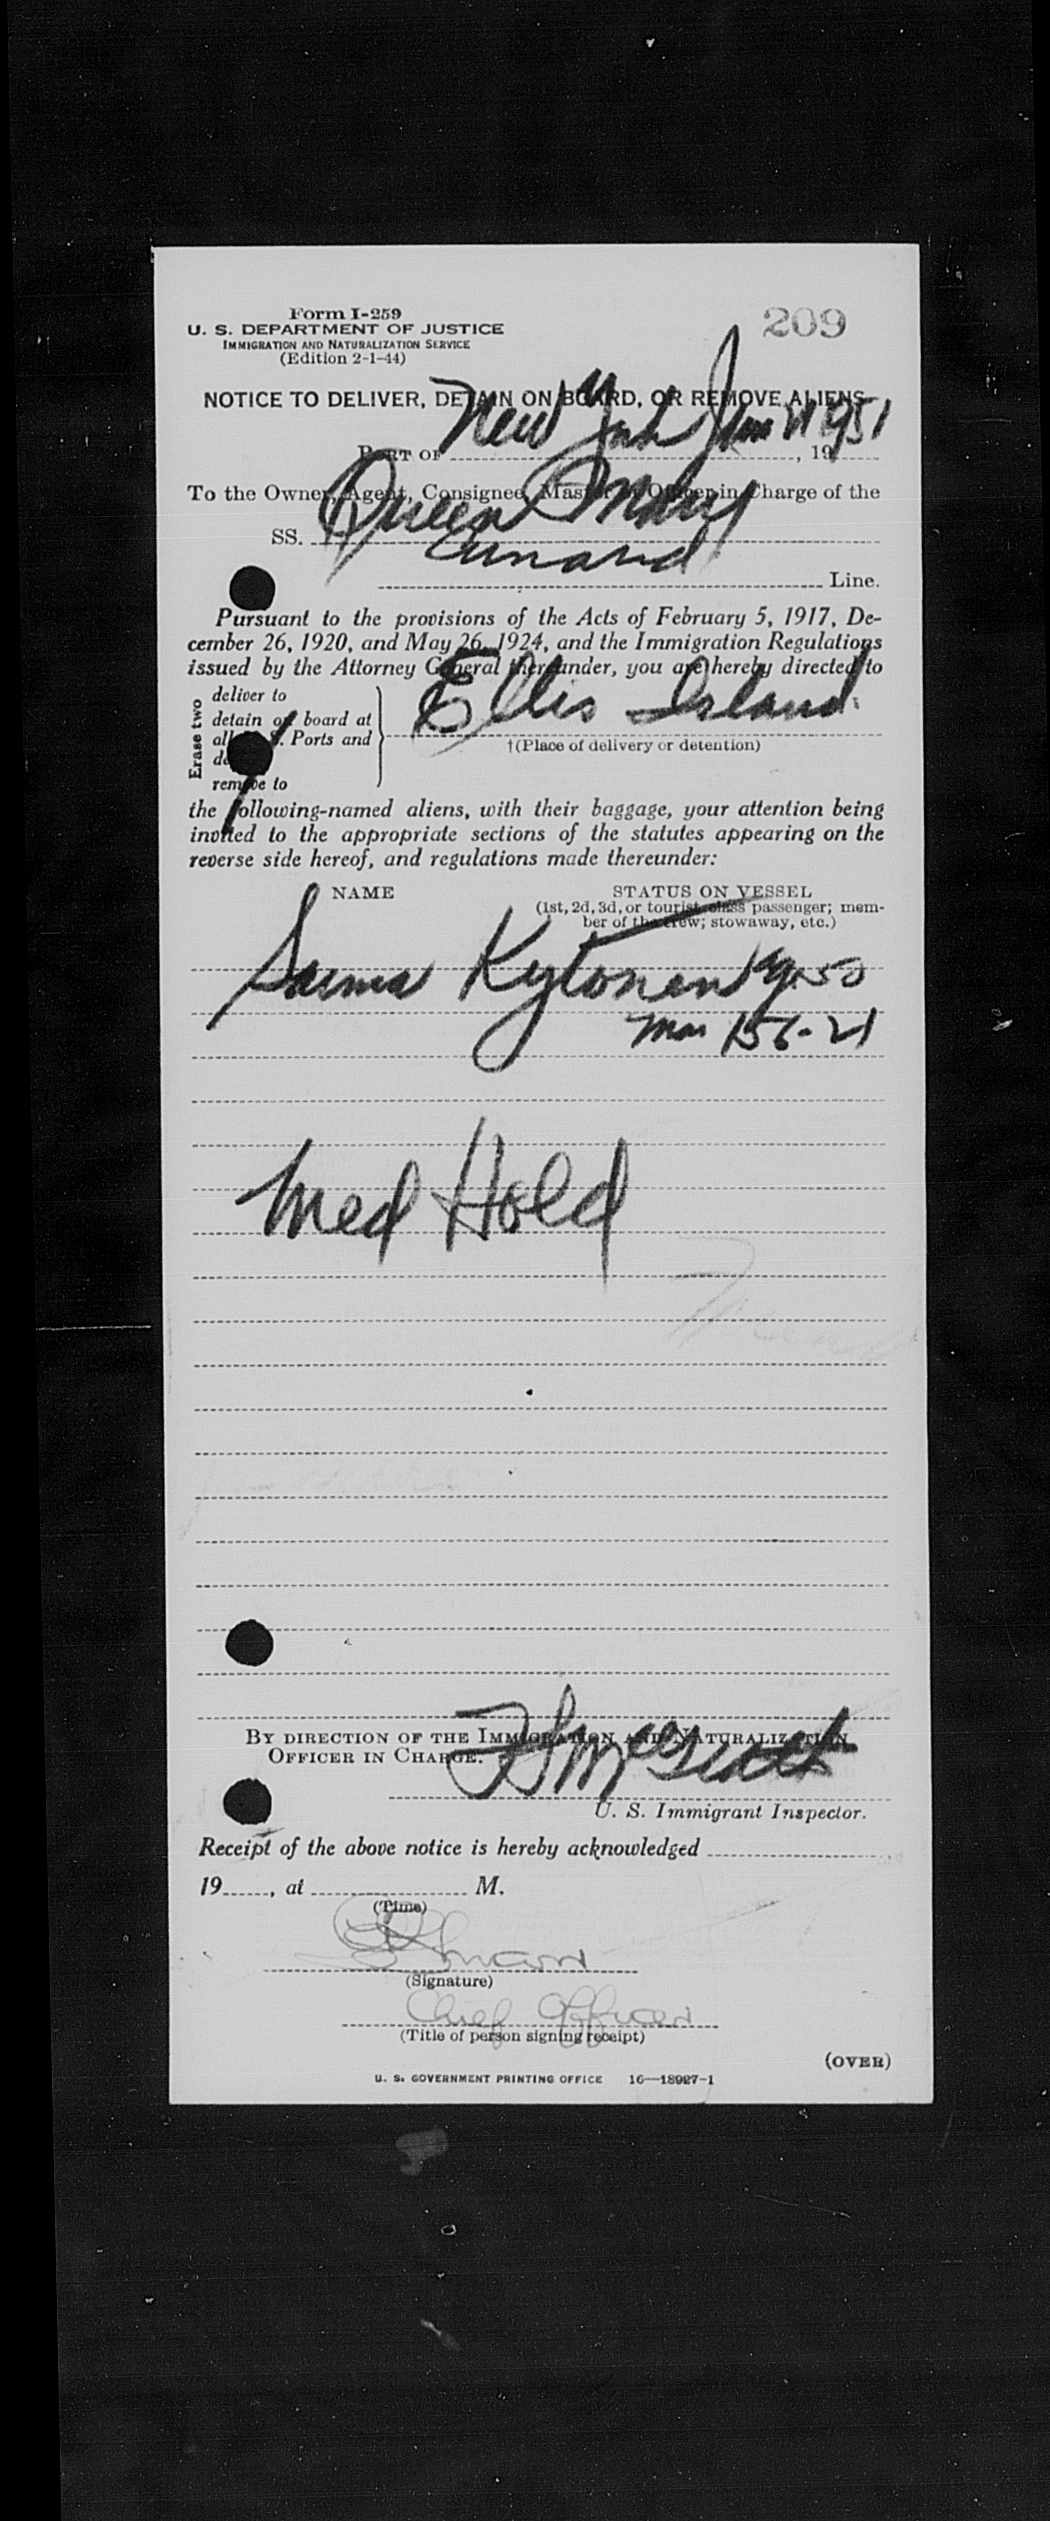 Form I-259
209
U. S. DEPARTMENT OF JUSTICE
IMMIGRATION AND NATURALIZATION SERVICE
(Edition 2-1-44)
NOTICE TO DELIVER, DETAIN ON BOARD, OR REMOVE ALIENS
PORT OF New York, 1951
To the Owner, Agent, Consignee, Master or Officer in Charge of the
SS. Queen Mary
Cunard Line.
Pursuant to the provisions of the Acts of February 5, 1917, De-
cember 26, 1920, and May 26, 1924, and the Immigration Regulations
issued by the Attorney General thereunder, you are hereby directed to
Erase two
deliver to
detain on board at
all U. S. Ports and
remove to
Ellis Island
†(Place of delivery or detention)
the following-named aliens, with their baggage, your attention being
invited to the appropriate sections of the statutes appearing on the
reverse side hereof, and regulations made thereunder:
NAME STATUS ON VESSEL
(1st, 2d, 3d, or tourist class passenger; mem-
ber of the crew; stowaway, etc.)
Saima Kytonen
156-21
Med Hold
BY DIRECTION OF THE IMMIGRATION AND NATURALIZATION
OFFICER IN CHARGE.
U. S. Immigrant Inspector.
Receipt of the above notice is hereby acknowledged
19 , at M.
(Time)
(Signature)
Chief Officer
(Title of person signing receipt)
(OVER)
U. S. GOVERNMENT PRINTING OFFICE 16—18927-1